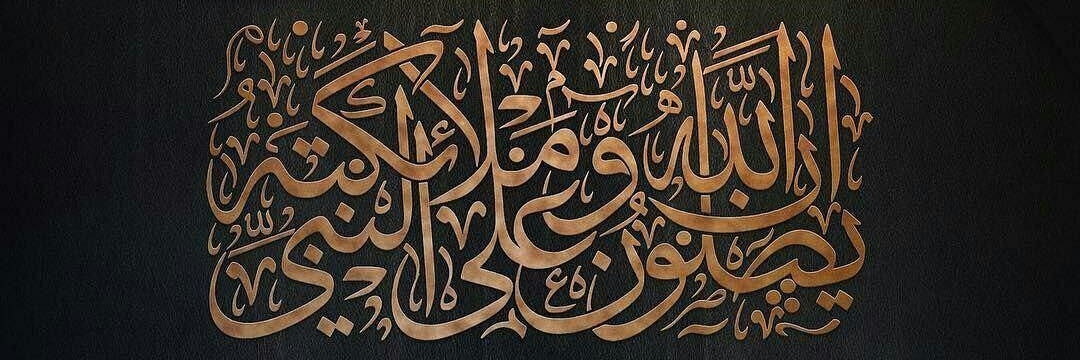 ان الله وملائكته
يصلون على النبي